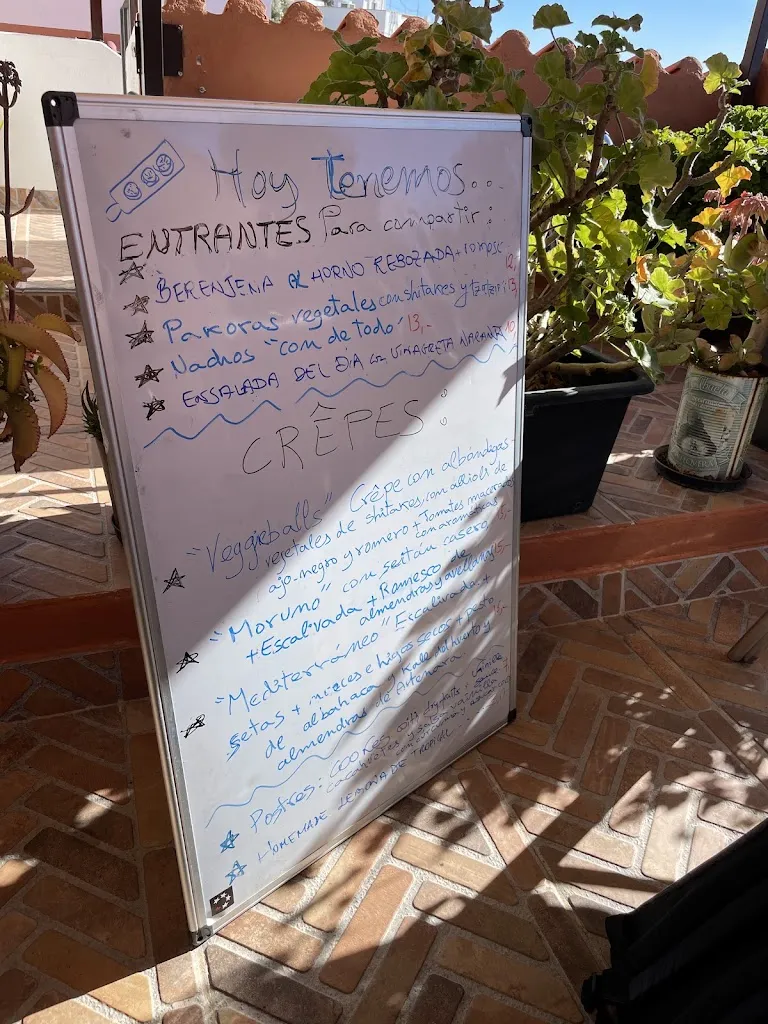 Hoy Tenemos...
ENTRANTES Para compartir:
BERENJENA AL HORNO REBOZADA + romesc 12,
Pakoras vegetales con shitakes y tartar: 13,
Nachos "con de todo" 13,-
ENSALADA DEL DIA con VINAGRETA NARANJA 10
CRÊPES:
"Veggieballs" Crêpe con albóndegas
vegetales de shitakes, con allioli de
ajo-negro y romero + Tomates macerados
con aromáticas 15,-
"Moruno" con seitán casero
+ Escalivada + Romesco de
almendras y avellanas 15,-
"Mediterráneo" Escalivada +
setas + nueces e higos secos + pesto
de albahaca y Kale del huerto y
almendras de Artenara.
Postres: COOKies with dry fruits:
HOMEMADE LEMONADE TROPICAL